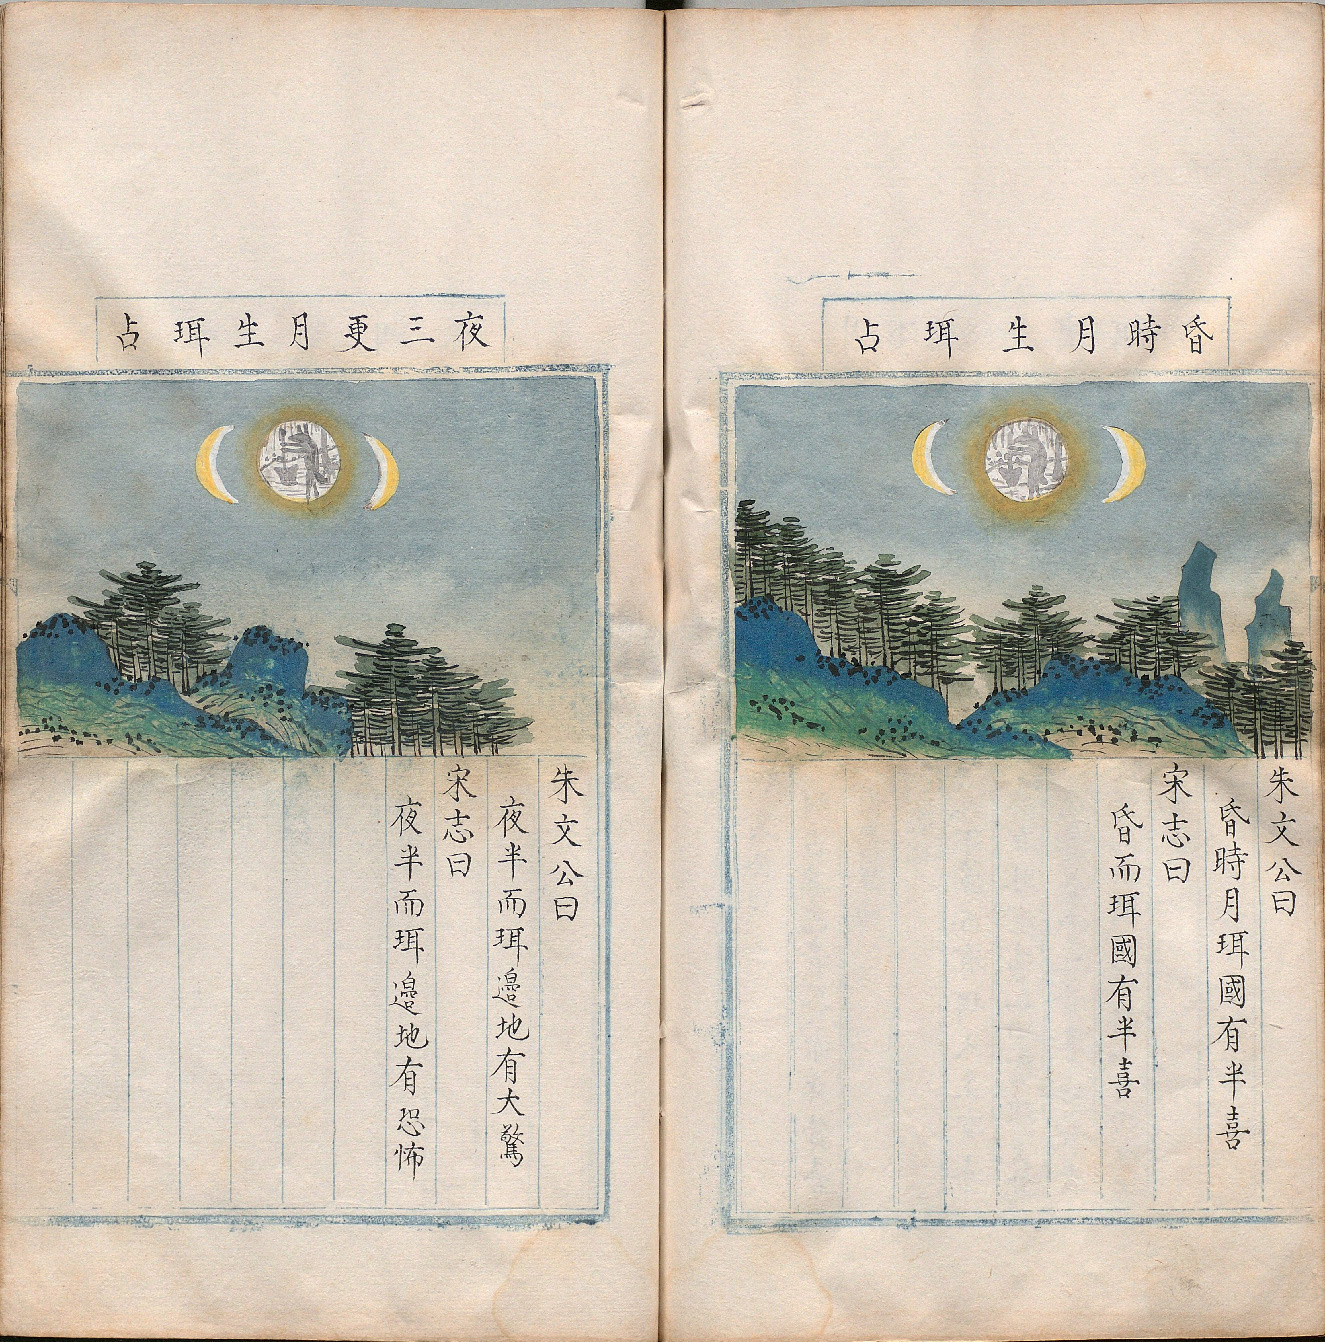 昏時月生珥占
朱文公曰
昏時月珥國有半喜
宋志曰
昏而珥國有半喜
夜三更月生珥占
朱文公曰
夜半而珥邉地有大驚
宋志曰
夜半而珥邉地有恐怖